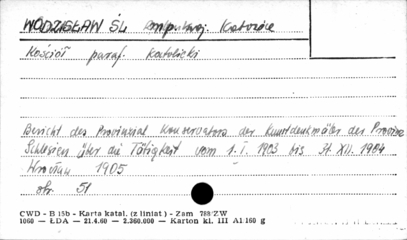 WODZISŁAW ŚL woj. Katowice
Kościół paraf. katolicki
Bericht des Provinzial Konservators der Kunstdenkmäler der Provinz
Schlesien über die Tätigkeit vom 1. I. 1903 bis 31. XII. 1904
Wrocław 1905
str. 51
CWD - B 15b - Karta katal. (z liniat) - Zam 788/ZW
1060 — ŁDA — 21.4.60 — 2.260.000 — Karton kl. III A1 160 g